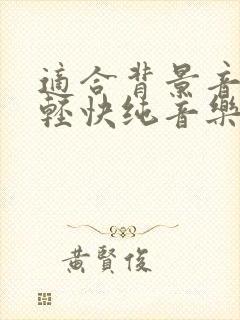 適合背景音
輕快纯音樂
黃賢俊